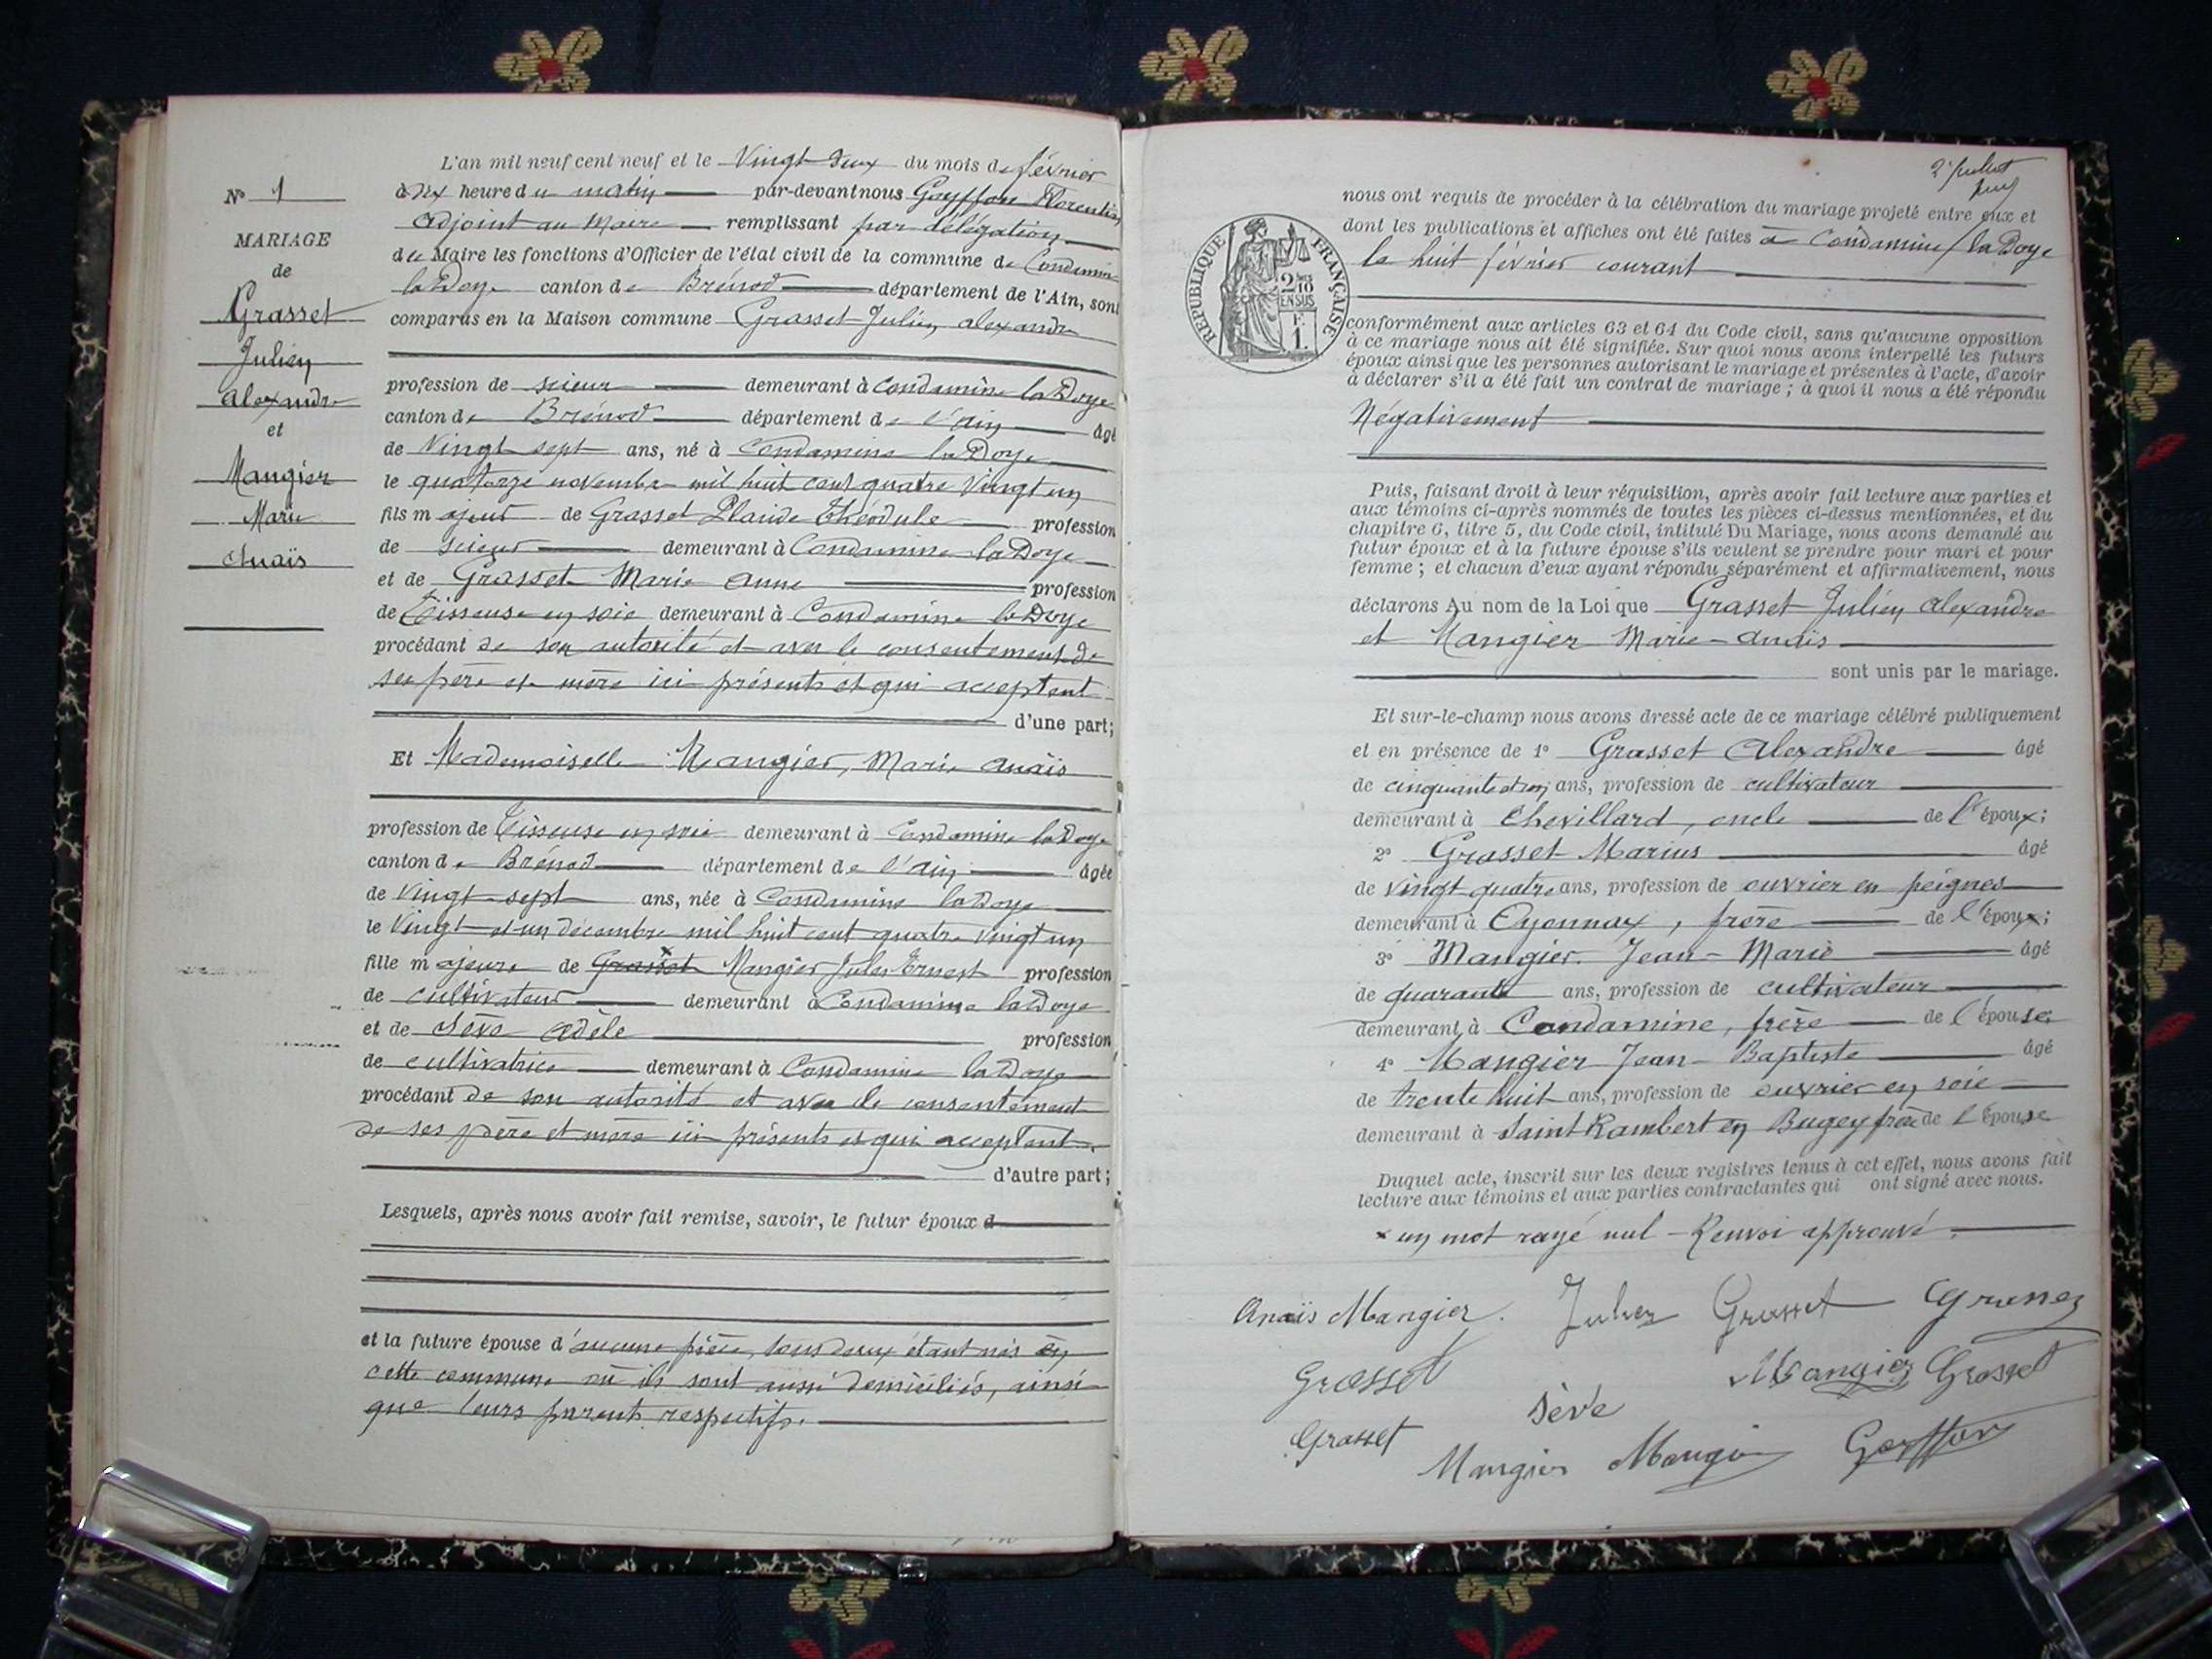 N° 1
MARIAGE
de
Grasset
Julien
Alexandre
et
Mangier
Marie
Anaïs
L'an mil neuf cent neuf et le Vingt deux du mois de février
à Dix heure du matin par-devant nous Goyffon Florentin,
Adjoint au Maire remplissant par délégation
du Maire les fonctions d'Officier de l'état civil de la commune de Condamine
la Doye canton de Brénod département de l'Ain, sont
comparus en la Maison commune Grasset Julien, Alexandre
profession de scieur demeurant à Condamine la Doye
canton de Brénod département de l'Ain âgé
de Vingt sept ans, né à Condamine la Doye
le quatorze novembre mil huit cent quatre Vingt un
fils majeur de Grasset Claude Théodule profession
de scieur demeurant à Condamine la Doye
et de Grasset Marie Anne profession
de Tisseuse en soie demeurant à Condamine la Doye
procédant de son autorité et avec le consentement de
ses père et mère ici présents et qui acceptent
d'une part;
Et Mademoiselle Mangier, Marie Anaïs
profession de Tisseuse en soie demeurant à Condamine la Doye
canton de Brénod département de l'Ain âgée
de Vingt sept ans, née à Condamine la Doye
le Vingt et un décembre mil huit cent quatre vingt un
fille majeure de Grasset Mangier Jules Ernest profession
de cultivateur demeurant à Condamine la Doye
et de Sève Adèle profession
de cultivatrice demeurant à Condamine la Doye
procédant de son autorité et avec le consentement
de ses père et mère ici présents et qui acceptent.
d'autre part;
Lesquels, après nous avoir fait remise, savoir, le futur époux d
et la future épouse d'aucune pièce, tous deux étant nés en
cette commune où ils sont aussi domiciliés, ainsi
que leurs parents respectifs.
2e feuillet
nous ont requis de procéder à la célébration du mariage projeté entre eux et
dont les publications et affiches ont été faites à Condamine la Doye
le huit février courant
REPUBLIQUE FRANÇAISE
2/10
EN SUS
F.
1.
conformément aux articles 63 et 64 du Code civil, sans qu'aucune opposition
à ce mariage nous ait été signifiée. Sur quoi nous avons interpellé les futurs
époux ainsi que les personnes autorisant le mariage et présentes à l'acte, d'avoir
à déclarer s'il a été fait un contrat de mariage ; à quoi il nous a été répondu
Négativement
Puis, faisant droit à leur réquisition, après avoir fait lecture aux parties et
aux témoins ci-après nommés de toutes les pièces ci-dessus mentionnées, et du
chapitre 6, titre 5, du Code civil, intitulé Du Mariage, nous avons demandé au
futur époux et à la future épouse s'ils veulent se prendre pour mari et pour
femme ; et chacun d'eux ayant répondu séparément et affirmativement, nous
déclarons Au nom de la Loi que Grasset Julien Alexandre
et Mangier Marie-Anaïs
sont unis par le mariage.
Et sur-le-champ nous avons dressé acte de ce mariage célébré publiquement
et en présence de 1° Grasset Alexandre âgé
de cinquante et un ans, profession de cultivateur
demeurant à Chevillard, oncle de l'époux;
2° Grasset Marius âgé
de vingt quatre ans, profession de ouvrier en peignes
demeurant à Oyonnax, frère de l'époux;
3° Mangier Jean-Marie âgé
de quarante ans, profession de cultivateur
demeurant à Condamine, frère de l'épouse;
4° Mangier Jean-Baptiste âgé
de trente huit ans, profession de ouvrier en soie
demeurant à Saint Rambert en Bugey frère de l'épouse
Duquel acte, inscrit sur les deux registres tenus à cet effet, nous avons fait
lecture aux témoins et aux parties contractantes qui ont signé avec nous.
x un mot rayé nul - Renvoi approuvé.
Anaïs Mangier. Julien Grasset
Grasset Mangier Grasset
Sève
Grasset
Mangier Mangier Goyffon